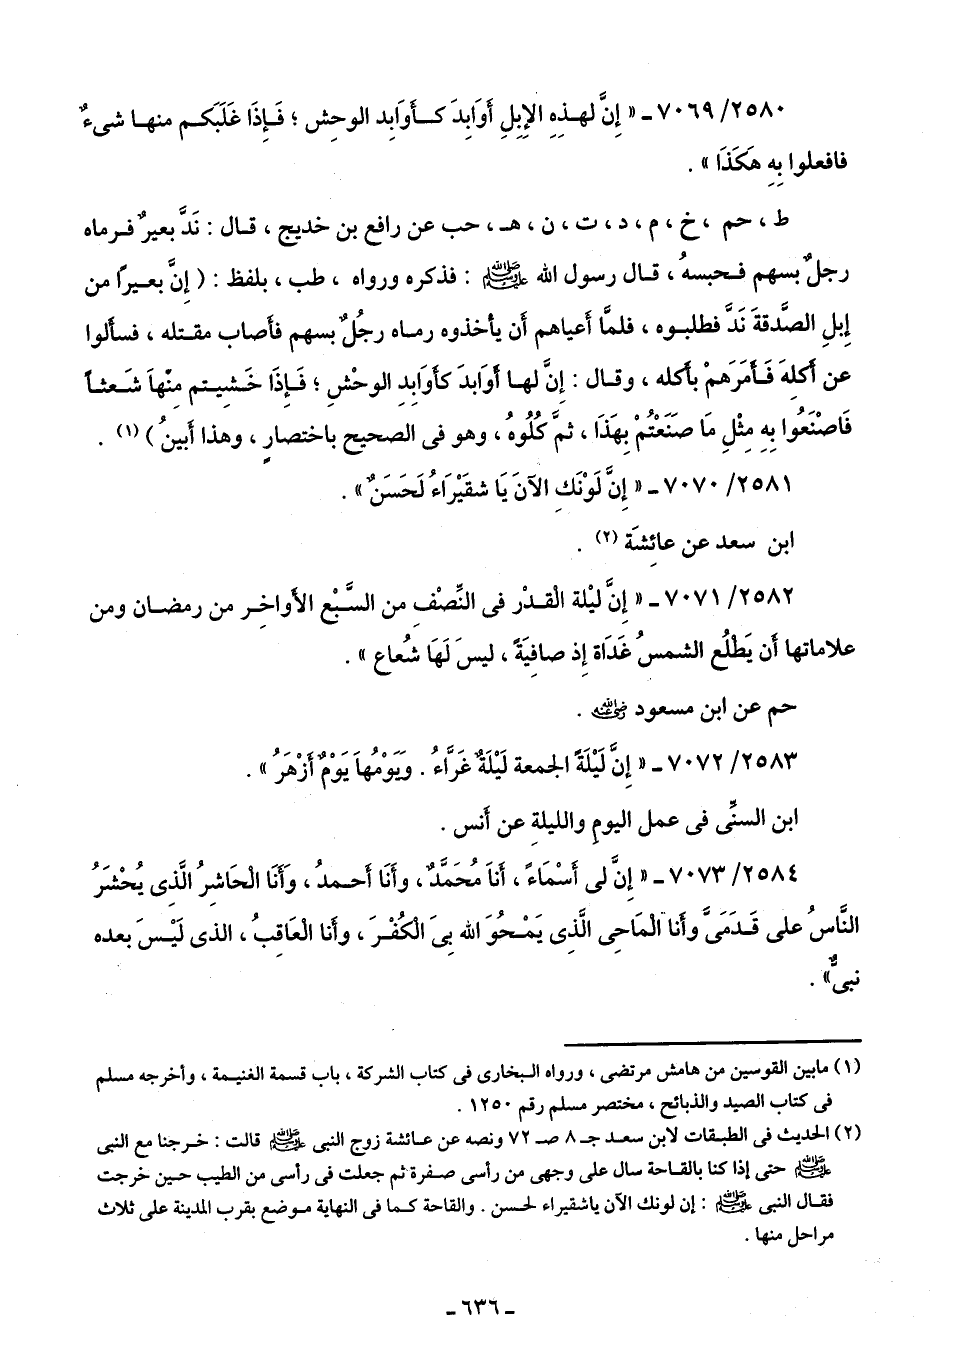 ٧٠٦٩/٢٥٨٠ ـ « إِنَّ لهـذِهِ الإِبِلِ أَوَابِدَ كَـأَوَابِد الوحش ؛ فَـإِذَا غَلَبَكـم منهـا شىءٌ
فافعلوا بِهِ هَكَذَا » .
ط ، حم ، خ ، م ، د ، ت ، ن ، هـ ، حب عن رافع بن خديج ، قـال : نَدَّ بعيرٌ فـرماه
رجلٌ بسهم فـحبسهُ ، قـال رسول الله ﷺ : فذكره ورواه ، طب ، بلفظ : ( إِنَّ بعـيرًا من
إبلِ الصَّدقةَ نَدَّ فطلبـوه ، فلمَّا أعياهم أن يأخذوه رمـاه رجُلٌ بسهم فأصاب مقـتله ، فسألوا
عن أكلِهَ فَـأَمَرَهمْ بأكله ، وقـال : إِنَّ لهـا أَوَابدَ كأَوَابِدِ الوحْشِ ؛ فَـإِذَا خَـشيتـم مِنْهاَ شَـعثـاً
فَاصْنَعُوا بِهِ مِثْلِ مَا صَنَعْتُمْ بِهَذَا ، ثمَّ كُلُوهُ ، وهو فى الصحيح باختصارٍ ، وهذا أبينُ ) (١) .
٧٠٧٠/٢٥٨١ ـ « إِنَّ لَوْنَكِ الآنَ يَا شقَيْرَاءُ لَحَسَنٌ » .
ابن سعد عن عائشة (٢) .
٧٠٧١/٢٥٨٢ ـ « إِنَّ ليْلةَ الْقـدْر فى النِّصْف من السَّبْع الأَواخـر من رمضـان ومن
علاماتها أَن يَطْلُع الشمسُ غَدَاة إذ صافِيَةً ، ليسَ لَهَا شُعاع » .
حم عن ابن مسعود رضي الله عنه .
٧٠٧٢/٢٥٨٣ ـ « إِنَّ لَيْلَةَ الجمعة لَيْلَةٌ غَرَّاءُ . وَيَوْمُهاَ يَوْمٌ أَزْهَرُ » .
ابن السنِّى فى عمل اليومِ والليلةِ عن أَنس .
٧٠٧٣/٢٥٨٤ ـ « إِنَّ لى أَسْمَاءً ، أَناَ مُحَمَّدٌ ، وأَنَا أَحـمدُ ، وأَنَا الْحَاشِرُ الَّذِى يُحْشَرُ
النَّاسُ على قَـدَمَىَّ وأَنا الْمَاحِى الَّذِى يَمْـحُوَ الله بِىَ الْكُفْـرَ ، وأَنا الْعَاقِبُ ، الذى لَيْـسَ بعده
نبىٌّ » .
(١) مابين القوسين من هامش مرتضى ، ورواه البخارى فى كتاب الشركة ، باب قسمة الغنيمة ، وأخرجه مسلم
فى كتاب الصيد والذبائح ، مختصر مسلم رقم ١٢٥٠ .
(٢) الحديث فى الطبقات لابن سعد جـ ٨ صـ ٧٢ ونصه عن عائشة زوج النبى ﷺ قالت : خرجنا مع النبى
ﷺ حتى إذا كنا بالقـاحة سال على وجهى من رأسى صـفرة ثم جعلت فى رأسى من الطيب حين خرجت
فقـال النبى ﷺ : إن لونك الآن ياشقيراء لحسن . والقاحة كـما فى النهاية مـوضع بقرب المدينة على ثلاث
مراحل منها .
ـ ٦٣٦ ـ